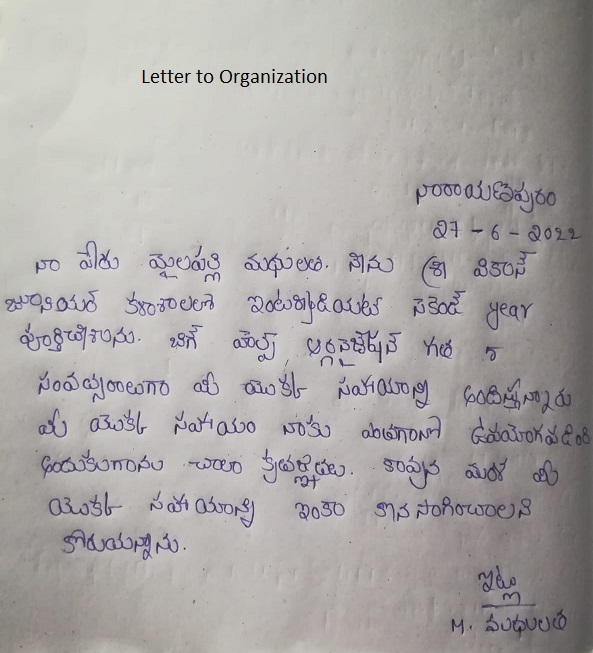 Letter to Organization
నారాయణపురం
27 - 6 - 2022
నా పేరు మైలపల్లి మధులత. నేను శ్రీ వికాస్
జూనియర్ కళాశాలలో ఇంటర్మీడియట్ సెకెండ్ year
పూర్తిచేశాను. బిగ్ హెల్ప్ ఆర్గనైజేషన్ గత 5
సంవత్సరాలుగా మీ యొక్క సహాయాన్ని అందిస్తున్నారు
మీ యొక్క సహాయం నాకు ఎంతగానో ఉపయోగపడింది
అందుకుగాను చాలా కృతజ్ఞతలు. కావున మరల మీ
యొక్క సహాయాన్ని ఇంకా కొనసాగించాలని
కోరుచున్నాను.
ఇట్లు
M. మధులత